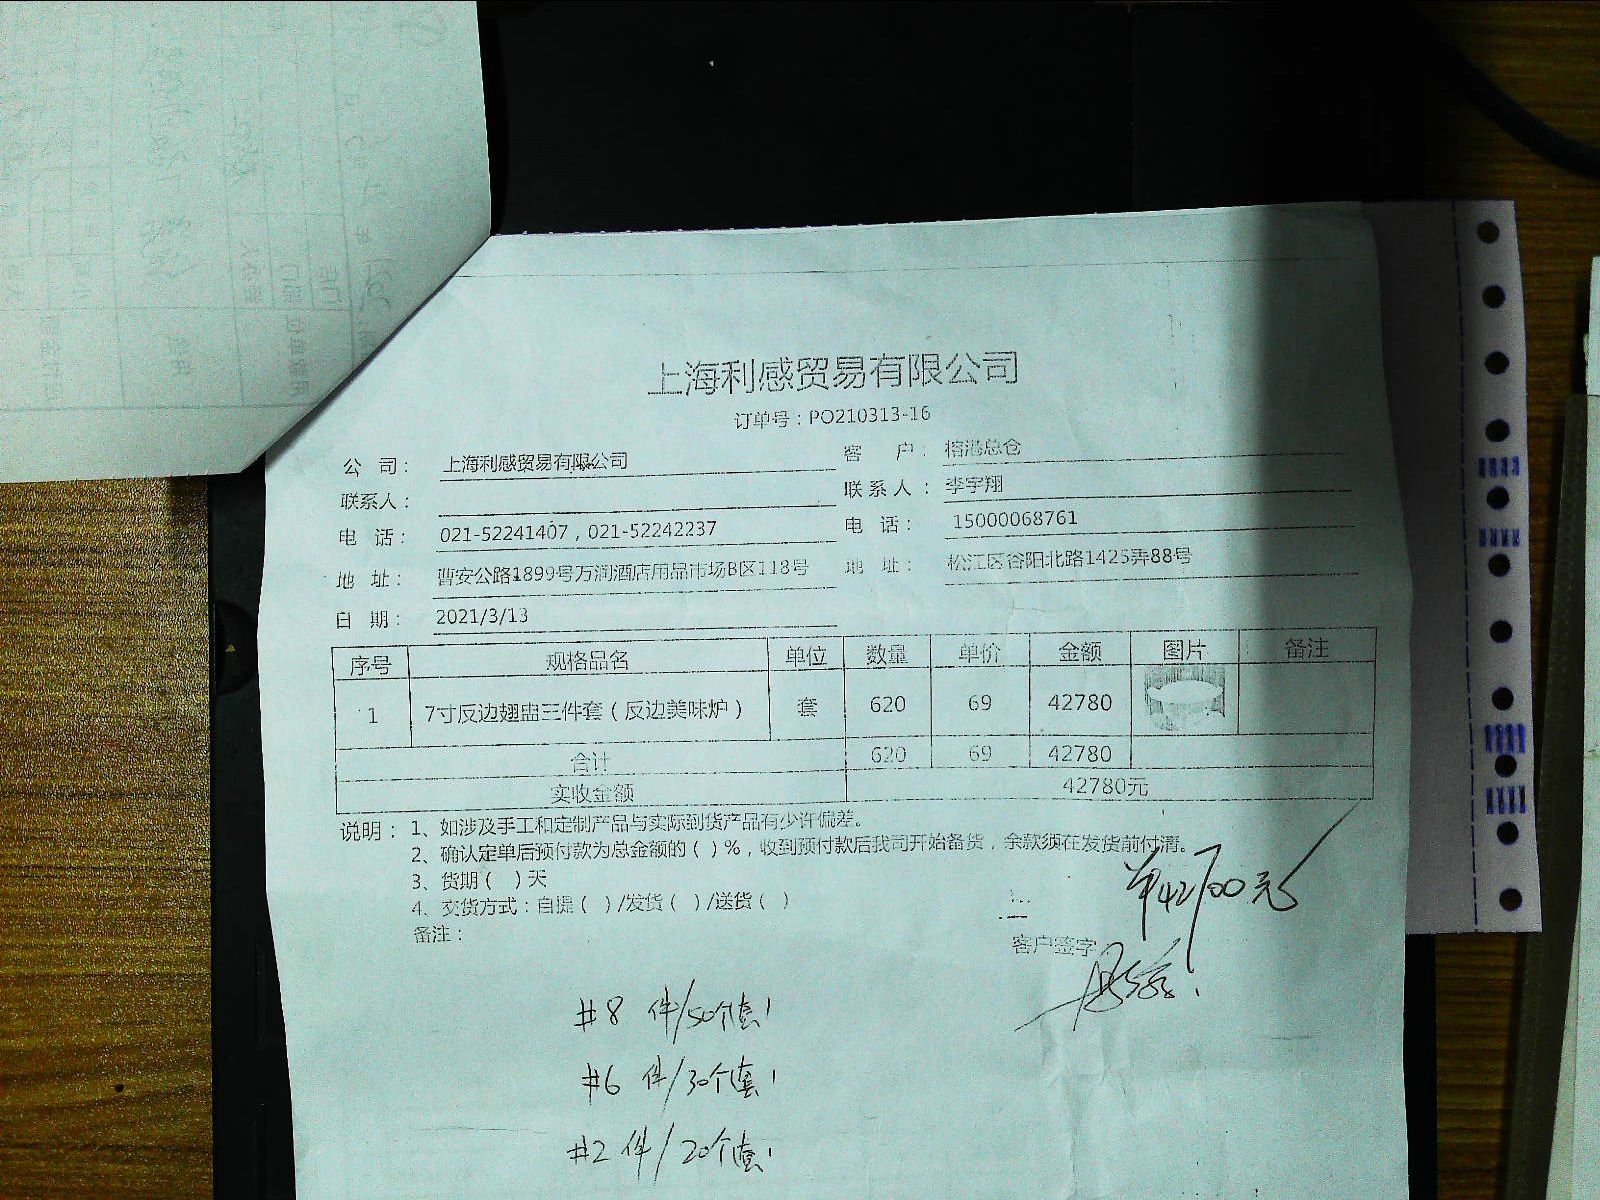 上海利感贸易有限公司
订单号：PO210313-16
公 司： 上海利感贸易有限公司 客 户： 榕港总仓
联系人： 联系人： 李宇翔
电 话： 021-52241407，021-52242237 电 话： 15000068761
地 址： 曹安公路1899号万润酒店用品市场B区118号 地 址： 松江区谷阳北路1425弄88号
日 期： 2021/3/13
序号 规格品名 单位 数量 单价 金额 图片 备注
1 7寸反边翅盅三件套（反边美味炉） 套 620 69 42780
合计 620 69 42780
实收金额 42780元
说明：1、如涉及手工和定制产品与实际到货产品有少许偏差。
2、确认定单后预付款为总金额的（ ）%，收到预付款后我司开始备货，余款须在发货前付清。
3、货期（ ）天
4、交货方式：自提（ ）/发货（ ）/送货（ ）
备注：
42700元
客户签字
#8 件/50个套
#6 件/30个套
#2 件/20个套